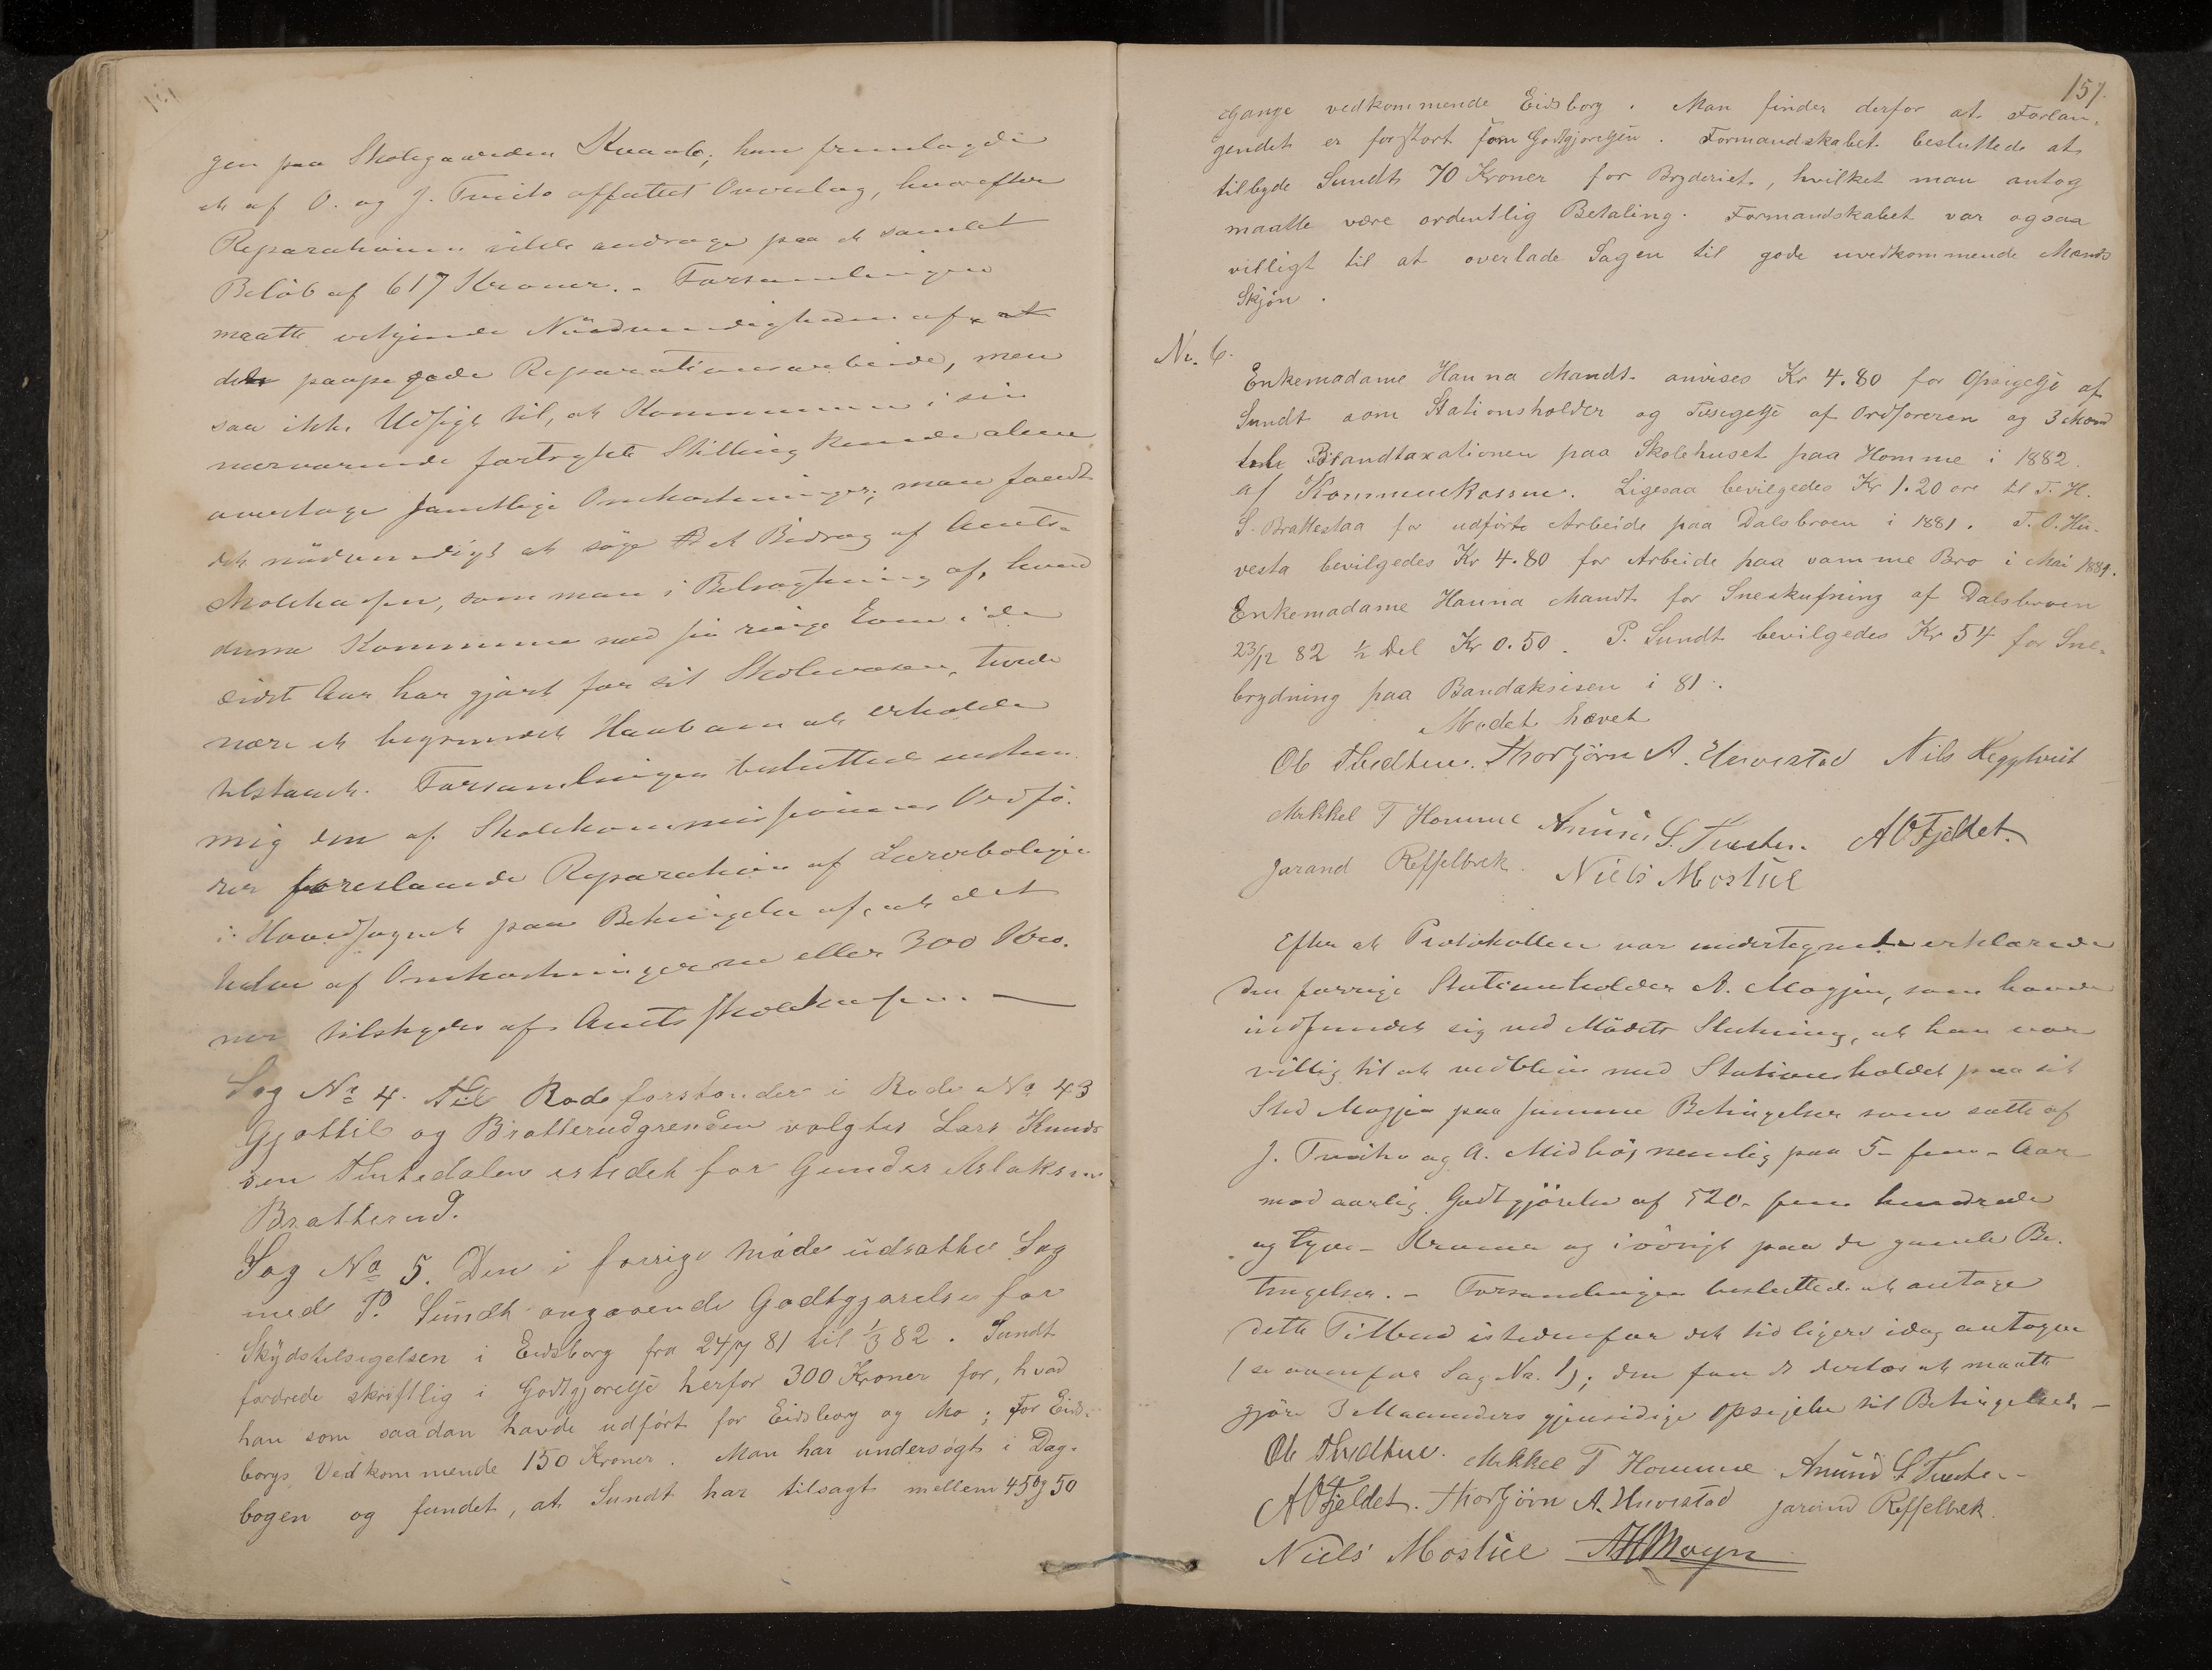 gen paa Skolegaarden Kvaale; han fremlagde
et af O. og J. Tveito affattet Overslag, hvorefter
Reparationen vilde andrage paa et samlet
Beløb af 617 Kroner. - Forsamlingen
maatte vel kjende Nødvendigheden af, at
det paapegede Reparationsarbeide, men
saa ikke Udsigt til, at Kommunen i sin
nærværende fortrykte Stilling kunde alene
overtage samtlige Omkostninger; man fandt
det nødvendigt at søge et Bidrag af Amts-
skolekassen, som man i Betragtning af, hvad
denne Kommune med sin ringe Evne i de
sidste Aar har gjort for sit Skolevæsen, turde
nære et begrundet Haab om at erholde
tilstaaet. Forsamlingen besluttede enstem-
mig den af Skolekommissionens Ordfø-
rer foreslaaede Reparation af Lærerboligen
i Hovedsognet paa Betingelse af, at det
halve af Omkostningerne eller 300 Kro-
ner tilskydes af Amtsskolekassen. —
Sag No 4. Til Rodeforstander i Rode No 43
Gjøttil og Bratterudgrenden valgtes Lars Knuds
sen istedet for Gunder Aslaksen
Bratterud.
Sag No 5. Den i forrige Møde udsatte Sag
med P. Sundt angaaende Godtgjørelse for
Skydstilsigelsen i Eidsborg fra 24/7 81 til 1/3 82. Sundt
fordrede skriftlig i Godtgjørelse herfor 300 Kroner for, hvad
han som saadan havde udført for Eidsborg og Mo; for Eids-
borgs Vedkommende 150 Kroner. Man har undersøgt i Dag-
bogen og fundet, at Sundt har tilsagt mellem 45 og 50
157.
Gange vedkommende Eidsborg. Man finder derfor at Forlan-
gendet er for stort som Godtgjørelsen. Formandskabet besluttede at
tilbyde Sundt 70 Kroner for Bryderiet, hvilket man antog
maatte være ordentlig Betaling. Formandskabet var ogsaa
villigt til at overlade Sagen til gode uvedkommende Mænds
Skjøn.
No. 6.
Enkemadame Hanna Mandt anvises Kr 4.80 for Opsigelse af
Sundt som Stationsholder og Tilsigelse af Ordføreren og 3 Mænd
til Brandtaxationen paa Skolehuset paa Homme i 1882
af Kommunekassen. Ligesaa bevilgedes Kr 1.20 øre til T. H.
S. Brattestaa for udførte Arbeide paa Dalsbroen i 1881. T. O. Hu-
vesta bevilgedes Kr 4.80 for Arbeide paa samme Bro i Mai 1881.
Enkemadame Hanna Mandt for Sneskufning af Dalsbroen
23/12 82 ½ Del Kr 0.50. P. Sundt bevilgedes Kr 54 for Sne-
brydning paa Bandaksisen i 81.
Mødet hævet
Thorbjørn A. Huvestad Nils Heggtveit
Mikkel T Homme Amund S. Tveten. A O Fjeldet.
Jarand Reffelbek. Niels Mostul
Efter at Protokollen var undertegnet erklærede
den forrige Stationsholder A. Mogjen, som havde
indfundet sig ved Mødets Slutning, at han var
villig til at vedblive med Stationsholdet paa sit
Sted Mogjen paa samme Betingelser som satte af
J. Tveito og A. Midbø, nemlig paa 5 - fem - Aar
mod aarlig Godtgjørelse af 520 - fem hundrede
og tyve - Kroner og iøvrigt paa de gamle Be-
tingelser. - Forsamlingen besluttede at antage
dette Tilbud istedenfor det tidligere idag antagne
(se ovenfor Sag No. 1); den fandt derhos at maatte
gjøre 3 Maaneders gjensidige Opsigelse til Betingelse. -
Mikkel T Homme Amund S Tveten
A O Fjeldet. Thorbjørn A. Huvestad Jarand Reffelbek.
Niels Mostul